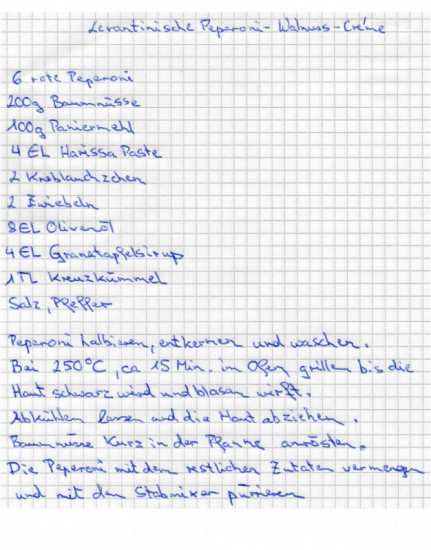 Levantinische Peperoni-Walnuss-Crème
6 rote Peperoni
200g Baumnüsse
100g Paniermehl
4 EL Harissa Paste
2 Knoblauchzehen
2 Zwiebeln
8EL Olivenöl
4EL Granatapfelsirup
1TL Kreuzkümmel
Salz, Pfeffer
Peperoni halbieren, entkernen und waschen.
Bei 250°C, ca 15 Min. im Ofen grillen bis die
Haut schwarz wird und blasen wirft.
Abkühlen lassen und die Haut abziehen.
Baumnüsse kurz in der Pfanne anrösten.
Die Peperoni mit den restlichen Zutaten vermengen
und mit dem Stabmixer pürieren